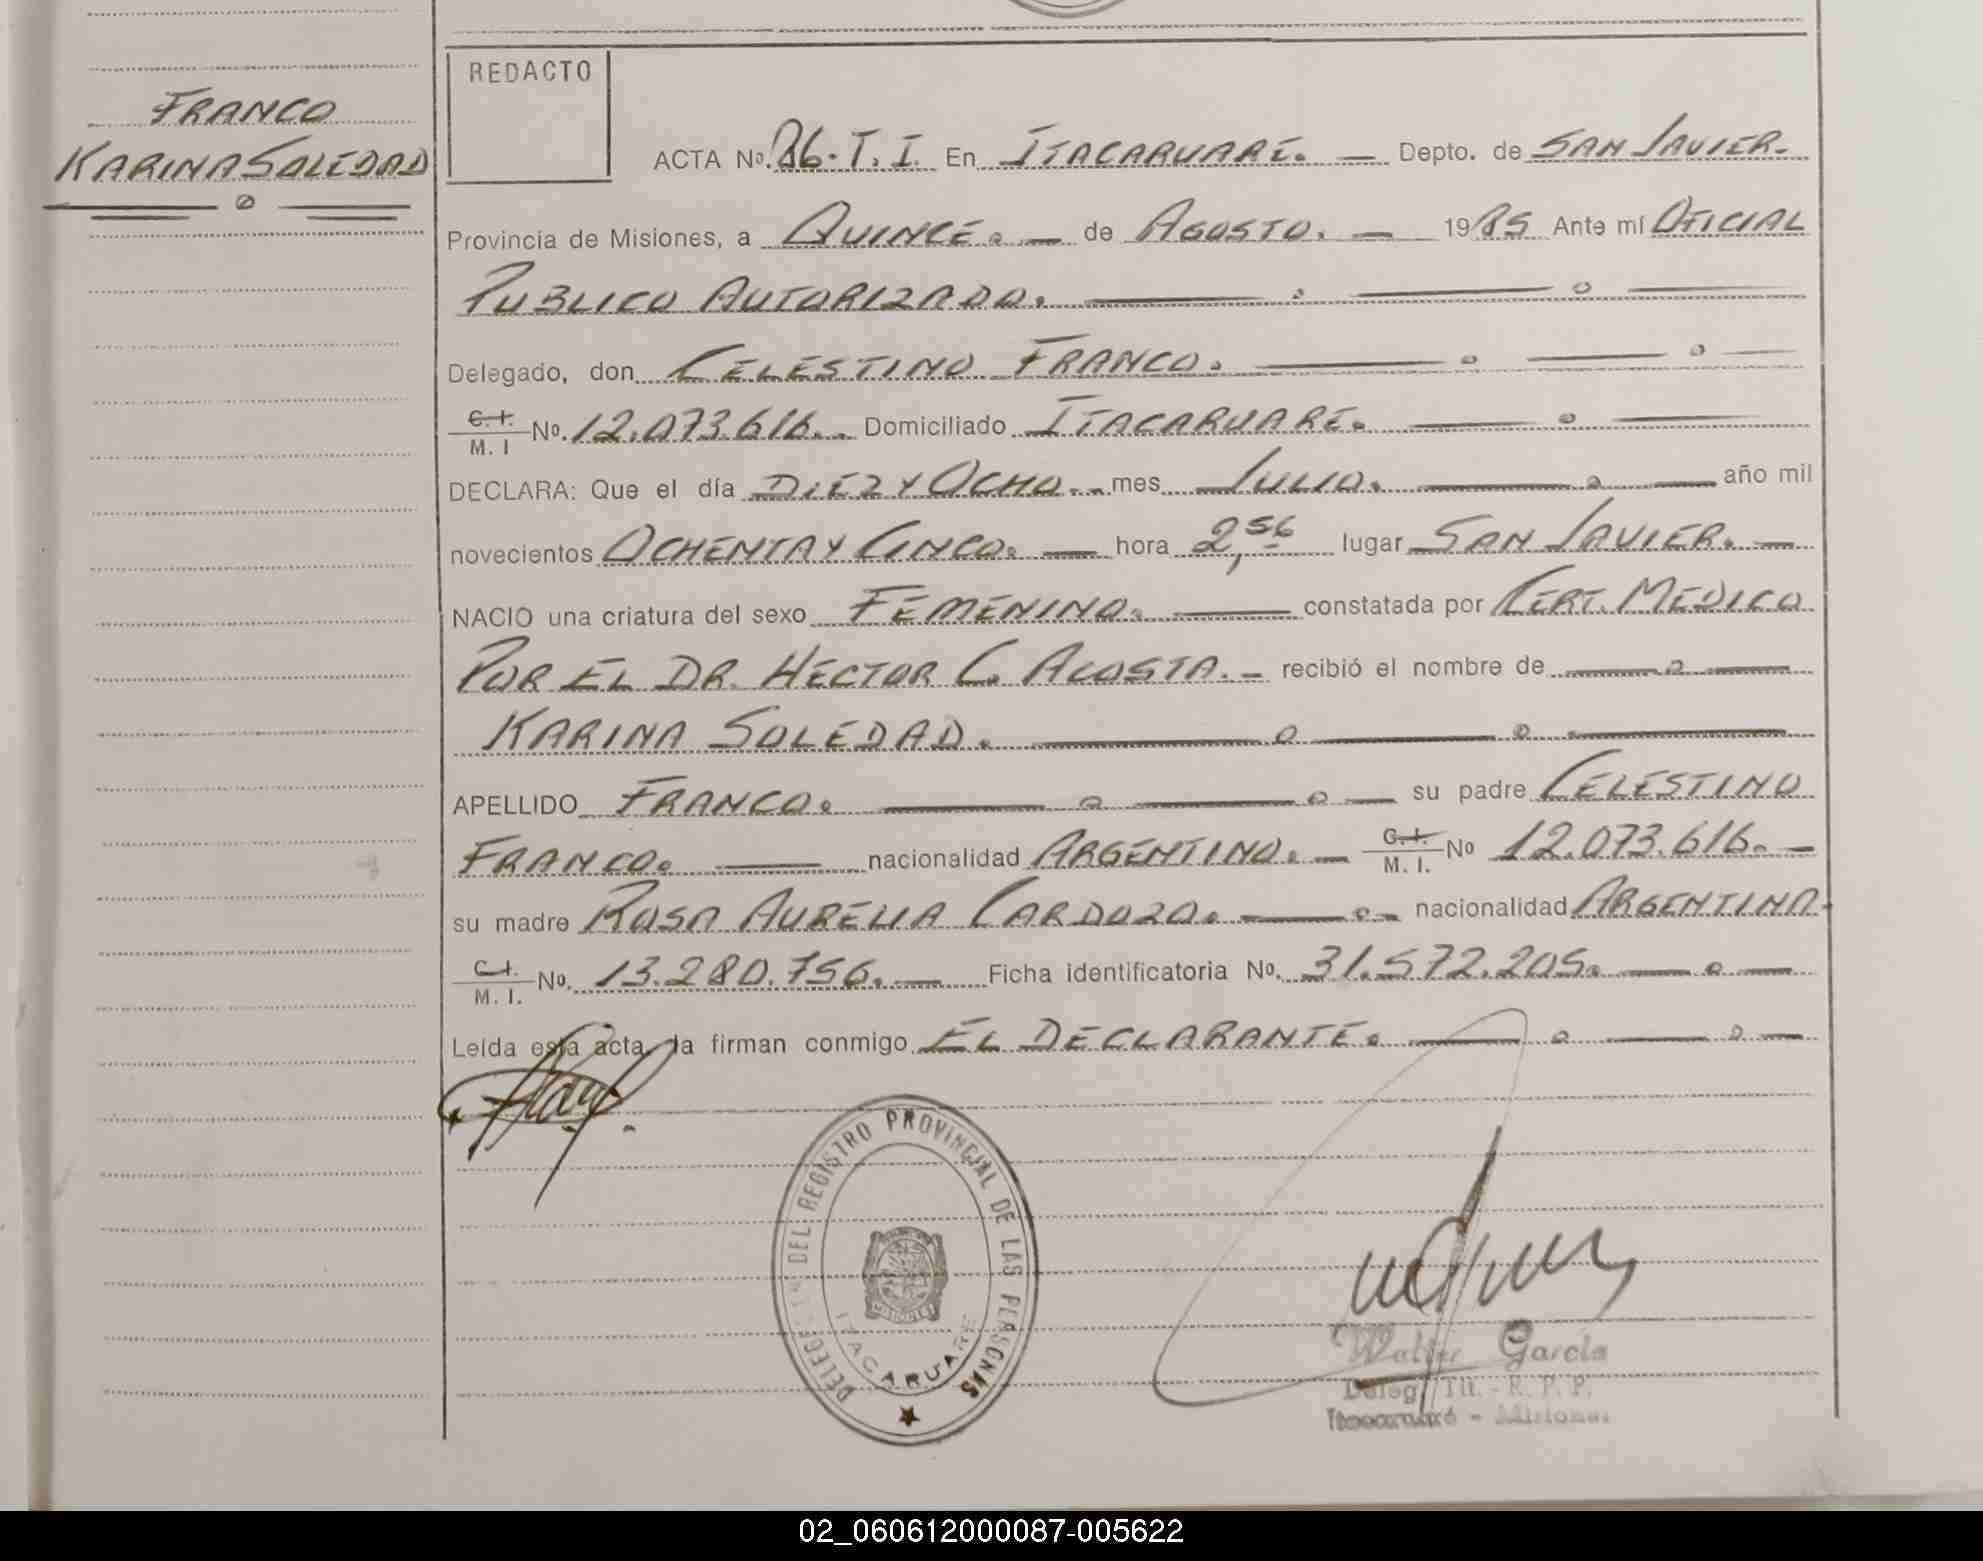 FRANCO
KARINA SOLEDAD
REDACTO
ACTA No. 86. T. I. En ITACARUARE. — Depto. de SAN JAVIER.
Provincia de Misiones, a QUINCE. — de AGOSTO. — 1985 Ante mí OFICIAL
PUBLICO AUTORIZADO.
Delegado, don CELESTINO FRANCO.
C.I. M. I No. 12.073.616. Domiciliado ITACARUARE.
DECLARA: Que el día DIEZ Y OCHO. mes JULIO. año mil
novecientos OCHENTA Y CINCO. — hora 2,56 lugar SAN JAVIER. —
NACIO una criatura del sexo FEMENINO. — constatada por CERT. MEDICO
POR EL DR. HECTOR C. ACOSTA. — recibió el nombre de
KARINA SOLEDAD.
APELLIDO FRANCO. su padre CELESTINO
FRANCO. — nacionalidad ARGENTINO. — C.I. M. I. No 12.073.616. —
su madre ROSA AURELIA CARDOZO. — nacionalidad ARGENTINA.
C.I. M. I. No. 13.280.756. — Ficha identificatoria No. 31.572.205.
Leída esta acta, la firman conmigo EL DECLARANTE.
DELEGACION DEL REGISTRO PROVINCIAL DE LAS PERSONAS
MISIONES
ITACARUARE
Walter García
Deleg. Tit. - R. P. P.
Itacaruaré - Misiones
02_060612000087-005622